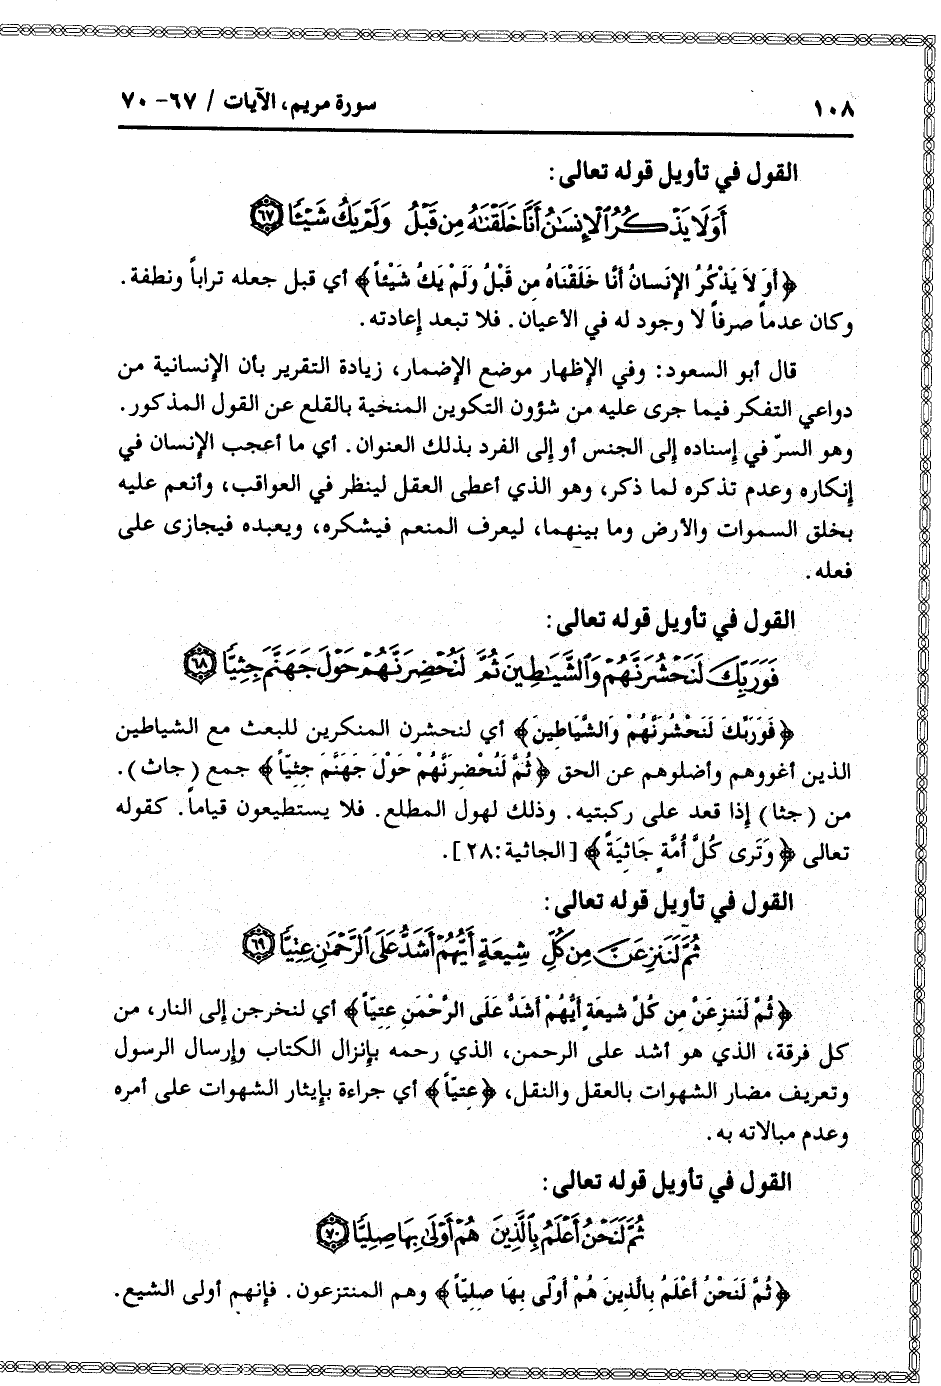 ١٠٨ سورة مريم، الآيات / ٦٧- ٧٠
القول في تأويل قوله تعالى:
أَوَلَا يَذْكُرُ ٱلْإِنسَٰنُ أَنَّا خَلَقْنَٰهُ مِن قَبْلُ وَلَمْ يَكُ شَيْـًٔا ٦٧
﴿أَوَ لاَ يَذْكُرُ الإِنَسانُ أَنَّا خَلَقْنَاهُ مِن قَبْلُ وَلَمْ يَكُ شَيْئاً﴾ أي قبل جعله تراباً ونطفة.
وكان عدماً صرفاً لا وجود له في الأعيان. فلا تبعد إعادته.
قال أبو السعود: وفي الإظهار موضع الإضمار، زيادة التقرير بأن الإنسانية من
دواعي التفكر فيما جرى عليه من شؤون التكوين المنخية بالقلع عن القول المذكور.
وهو السرّ في إسناده إلى الجنس أو إلى الفرد بذلك العنوان. أي ما أعجب الإنسان في
إنكاره وعدم تذكره لما ذكر، وهو الذي أعطى العقل لينظر في العواقب، وأنعم عليه
بخلق السموات والأرض وما بينهما، ليعرف المنعم فيشكره، ويعبده فيجازى على
فعله.
القول في تأويل قوله تعالى:
فَوَرَبِّكَ لَنَحْشُرَنَّهُمْ وَٱلشَّيَٰطِينَ ثُمَّ لَنُحْضِرَنَّهُمْ حَوْلَ جَهَنَّمَ جِثِيًّا ٦٨
﴿فَوَرَبِّكَ لَنَحْشُرَنَّهُمْ وَالشَّيَاطِينَ﴾ أي لنحشرن المنكرين للبعث مع الشياطين
الذين أغووهم وأضلوهم عن الحق ﴿ثُمَّ لَنُحْضِرَنَّهُمْ حَوْلَ جَهَنَّمَ جِثِيّاً﴾ جمع (جاث).
من (جثا) إذا قعد على ركبتيه. وذلك لهول المطلع. فلا يستطيعون قياماً. كقوله
تعالى ﴿وَتَرى كُلَّ أُمَّةٍ جَاثِيَةً﴾ [الجاثية:٢٨].
القول في تأويل قوله تعالى:
ثُمَّ لَنَنزِعَنَّ مِن كُلِّ شِيعَةٍ أَيُّهُمْ أَشَدُّ عَلَى ٱلرَّحْمَٰنِ عِتِيًّا ٦٩
﴿ثُمَّ لَنَنزِعَنَّ مِن كُلِّ شِيعَةٍ أَيُّهُمْ أَشَدُّ عَلَى الرَّحْمَنِ عِتِيّاً﴾ أي لنخرجن إلى النار، من
كل فرقة، الذي هو أشد على الرحمن، الذي رحمه بإنزال الكتاب وإرسال الرسول
وتعريف مضار الشهوات بالعقل والنقل، ﴿عِتيّاً﴾ أي جراءة بإيثار الشهوات على أمره
وعدم مبالاته به.
القول في تأويل قوله تعالى:
ثُمَّ لَنَحْنُ أَعْلَمُ بِٱلَّذِينَ هُمْ أَوْلَىٰ بِهَا صِلِيًّا ٧٠
﴿ثُمَّ لَنَحْنُ أَعْلَمُ بِالَّذِينَ هُمْ أَوْلَى بِهَا صِلِيّاً﴾ وهم المنتزعون. فإنهم أولى الشيع.